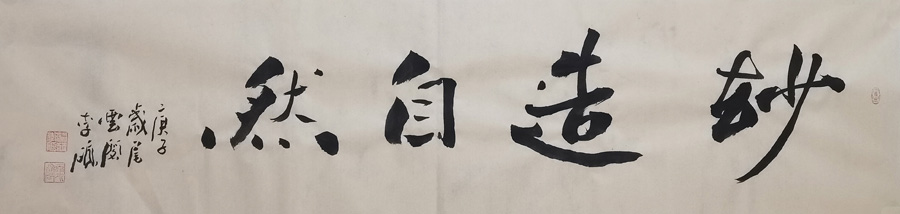 妙造自然
庚子
歲尾
雲閣
李